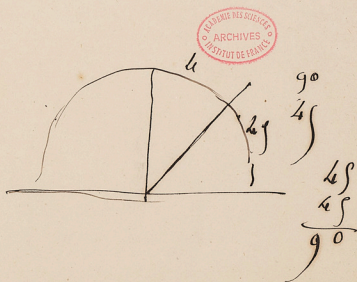 ACADÉMIE DES SCIENCES
ARCHIVES
INSTITUT DE FRANCE
90
45
45
45
45
90